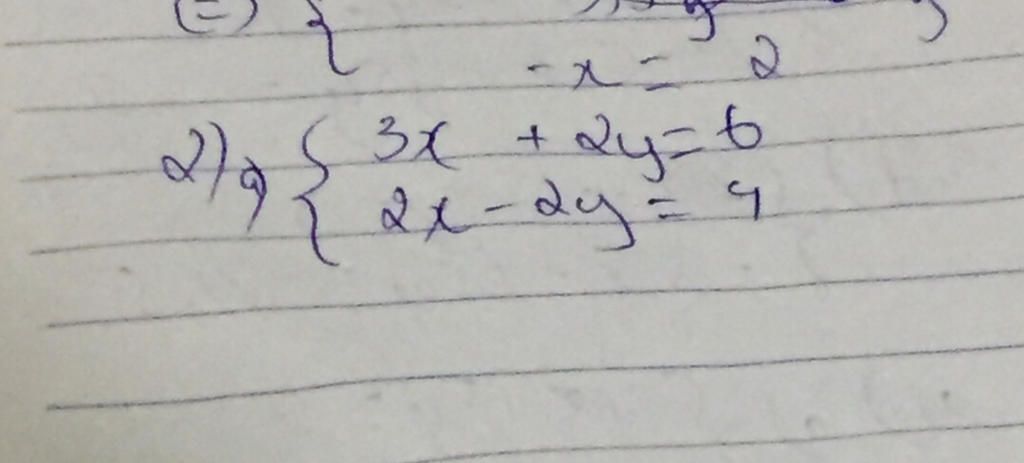 (=) {
-x = 2
2) a) { 3x + 2y = 6
2x - 2y = 4